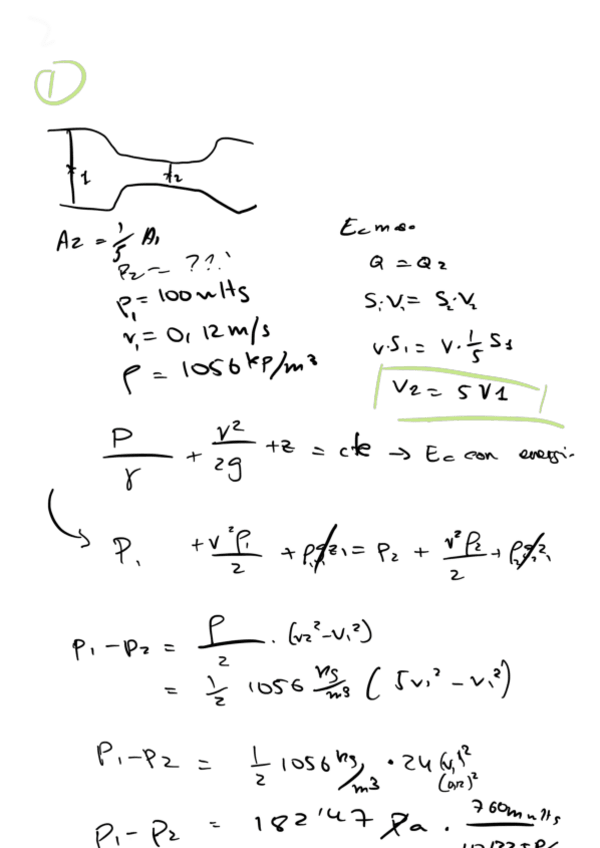 1
1
2
A2 = 1/5 A1
P2 = ???
P1 = 100 mmHg
v1 = 0,12 m/s
ρ = 1056 kp/m³
Q = Q2
S1·V1 = S2·V2
v·S1 = v·1/5 S1
V2 = 5V1
P/γ + v²/2g + z = cte → Ec con energi
P1 + v²ρ1/2 + ρ1gz1 = P2 + v²ρ2/2 + ρ2gz2
P1 - P2 = ρ/2 · (v2² - v1²)
= 1/2 1056 kg/m³ (5v1² - v1²)
P1 - P2 = 1/2 1056 kg/m³ · 24 (v1)²
(0,12)²
P1 - P2 = 182'47 Pa · 760mmHg